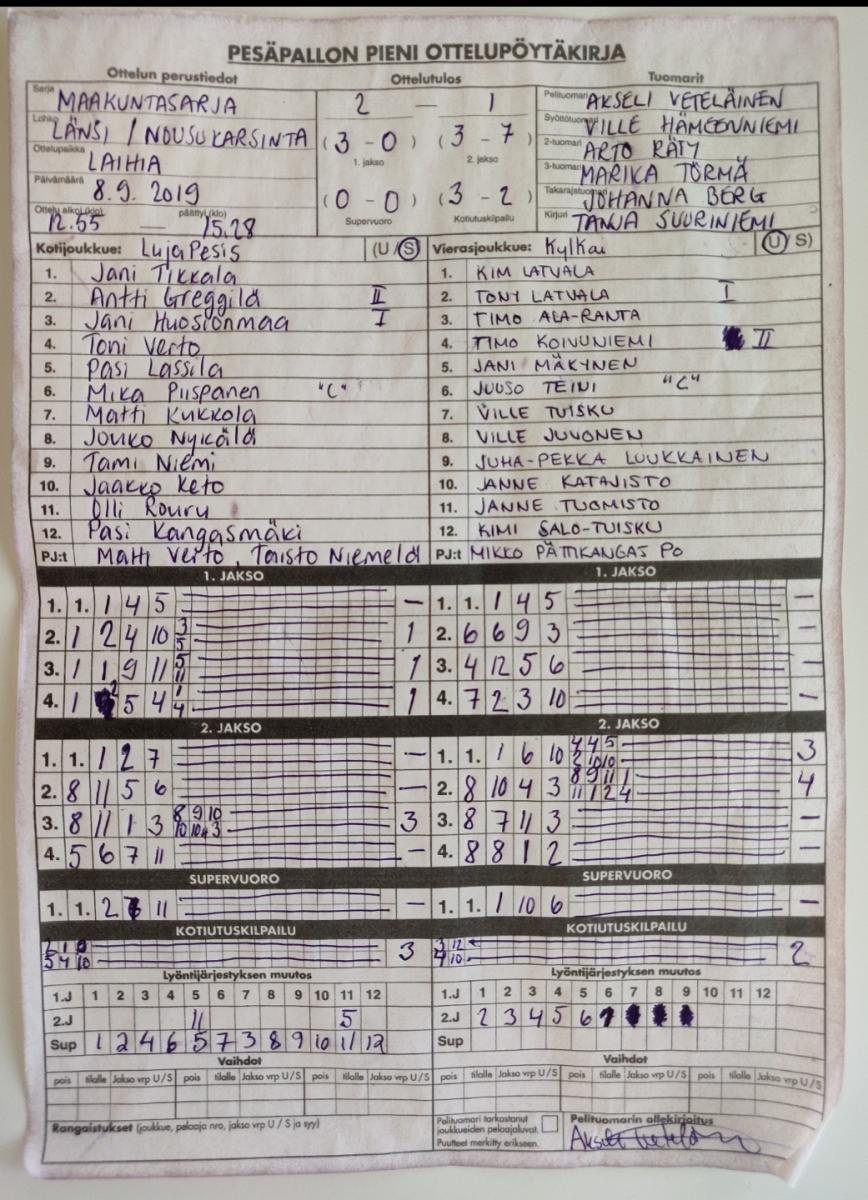 PESÄPALLON PIENI OTTELUPÖYTÄKIRJA
Ottelun perustiedot Ottelutulos Tuomarit
Sarja MAAKUNTASARJA 2 — 1 Pelituomari AKSELI VETELÄINEN
Lohko LÄNSI / NOUSUKARSINTA (3 - 0) (3 - 7) Syöttötuomari VILLE HÄMEENNIEMI
1. jakso 2. jakso 2-tuomari ARTO RÄTY
Ottelupaikka LAIHIA 3-tuomari MARIKA TÖRMÄ
Päivämäärä 8.9. 2019 (0 - 0) (3 - 2) Takarajatuomari JOHANNA BERG
Ottelu alkoi (klo) 12.55 — päättyi (klo) 15.28 Supervuoro Kotiutuskilpailu Kirjuri TANJA SUURINIEMI
Kotijoukkue: LujaPesis (U/S) Vierasjoukkue: KylKai (U/S)
1. Jani Tikkala 1. KIM LATVALA
2. Antti Greggilä II 2. TONY LATVALA I
3. Jani Huosionmaa I 3. TIMO ALA-RANTA
4. Toni Verto 4. TIMO KOIVUNIEMI II
5. Pasi Lassila 5. JANI MÄKYNEN
6. Mika Piispanen "C" 6. JUUSO TEINI "C"
7. Matti Kukkola 7. VILLE TUISKU
8. Jouko Nykälä 8. VILLE JUVONEN
9. Tami Niemi 9. JUHA-PEKKA LUUKKAINEN
10. Jaakko Keto 10. JANNE KATAJISTO
11. Olli Rouru 11. JANNE TUOMISTO
12. Pasi Kangasmäki 12. KIMI SALO-TUISKU
PJ:t Matti Verto, Taisto Niemelä PJ:t MIKKO PÄTTIKANGAS PO
1. JAKSO 1. JAKSO
1. 1. 1 4 5 — 1. 1. 1 4 5 —
2. 1 2 4 10 3 5 1 2. 6 6 9 3 —
3. 1 1 9 11 5 11 1 3. 4 12 5 6 —
4. 1 2 5 4 1 4 1 4. 7 2 3 10 —
2. JAKSO 2. JAKSO
1. 1. 1 2 7 — 1. 1. 1 6 10 4 4 5 2 10 10 3
2. 8 11 5 6 — 2. 8 10 4 3 8 9 11 1 11 1 2 4 4
3. 8 11 1 3 8 9 10 10 10 3 3 3. 8 7 11 3 —
4. 5 6 7 11 — 4. 8 8 1 2 —
SUPERVUORO SUPERVUORO
1. 1. 2 11 — 1. 1. 1 10 6 —
KOTIUTUSKILPAILU KOTIUTUSKILPAILU
5 4 10 3 3 12 10 2
Lyöntijärjestyksen muutos Lyöntijärjestyksen muutos
1.J 1 2 3 4 5 6 7 8 9 10 11 12 1.J 1 2 3 4 5 6 7 8 9 10 11 12
2.J 11 5 2.J 2 3 4 5 6 1
Sup 1 2 4 6 5 7 3 8 9 10 11 12 Sup
Vaihdot Vaihdot
pois tilalle Jakso vrp U/S pois tilalle Jakso vrp U/S pois tilalle Jakso vrp U/S pois tilalle Jakso vrp U/S pois tilalle Jakso vrp U/S pois tilalle Jakso vrp U/S
Rangaistukset (joukkue, pelaaja nro, jakso vrp U / S ja syy) Pelituomari tarkastanut joukkueiden pelaajaluvat. Puutteet merkitty erikseen. Pelituomarin allekirjoitus